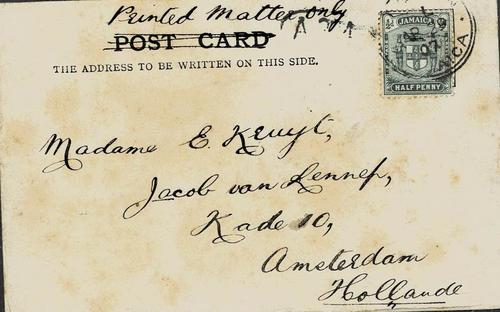 Printed Matter only
POST CARD
THE ADDRESS TO BE WRITTEN ON THIS SIDE.
JAMAICA
HALF PENNY
Madame E. Kruyt,
Jacob van Lennep,
Kade 10,
Amsterdam
Hollande